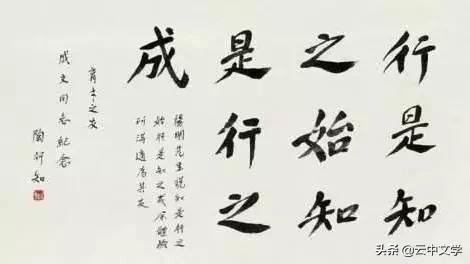 行是知
之始知
是行之
成
陽明先生說知是行之
始行是知之成余體驗
適為其反
育才之友
成文同志紀念
陶行知
头条 @云中文学